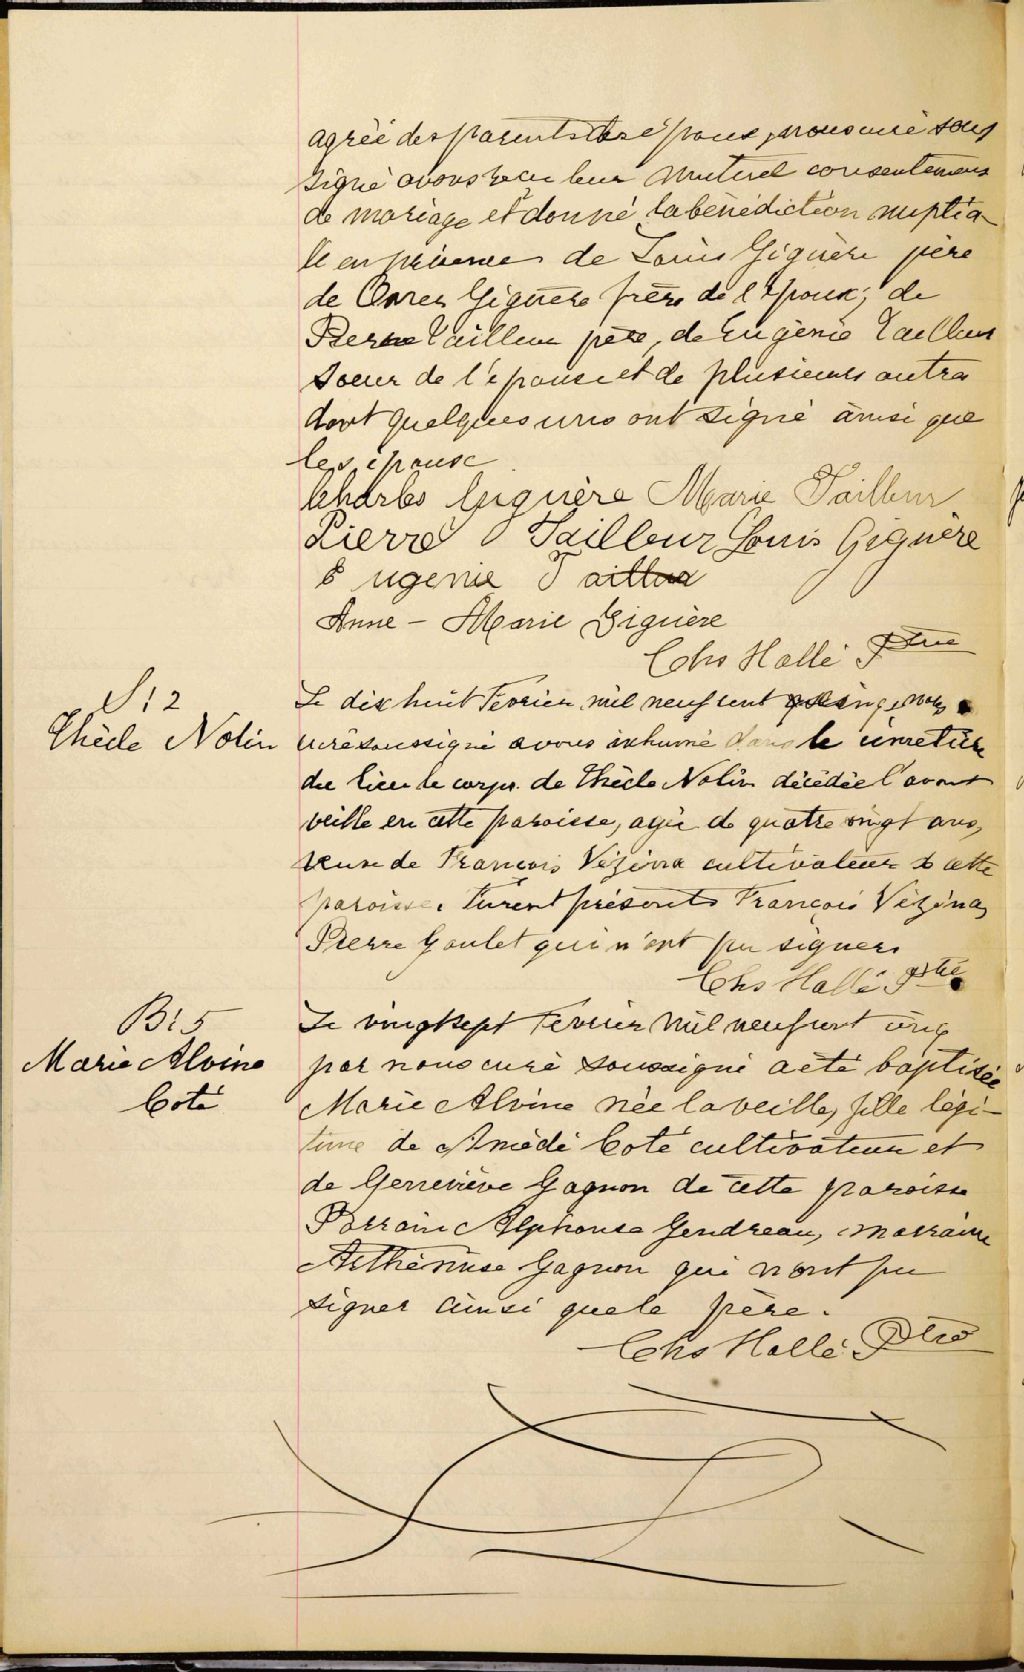 agréé des parents des époux, nous curé sous
signé avons reçu leur mutuel consentement
de mariage et donné la bénédiction nuptia-
le en présence de Louis Giguère père
de Omer Giguère frère de l'époux; de
Pierre Tailleur père, de Eugénie Tailleur
soeur de l'épouse et de plusieurs autres
dont quelques uns ont signé ainsi que
les époux
Charles Giguère Marie Tailleur
Pierre Tailleur Louis Giguère
Eugenie Tailleur
Anne-Marie Giguère
Chs Hallé Ptre
S: 2
Thècle Nolin
Le dix huit Fevrier mil neuf cent cinq, nous
curé soussigné avons inhumé dans le cimetière
du lieu le corps de Thècle Nolin décédée l'avant
veille en cette paroisse, agée de quatre vingt ans,
veuve de François Vézina cultivateur de cette
paroisse. Furent présents François Vézina,
Pierre Goulet qui n'ont pu signer.
Chs Hallé Ptre
B: 5
Marie Alvine
Coté
Le vingt sept Fevrier mil neuf cent cinq
par nous curé soussigné a été baptisée
Marie Alvine née la veille, fille légi-
time de Amédé Coté cultivateur et
de Genneviève Gagnon de cette paroisse
Parrain Alphonse Gendreau, marraine
Arthémise Gagnon qui n'ont pu
signer ainsi que le père.
Chs Hallé Ptre